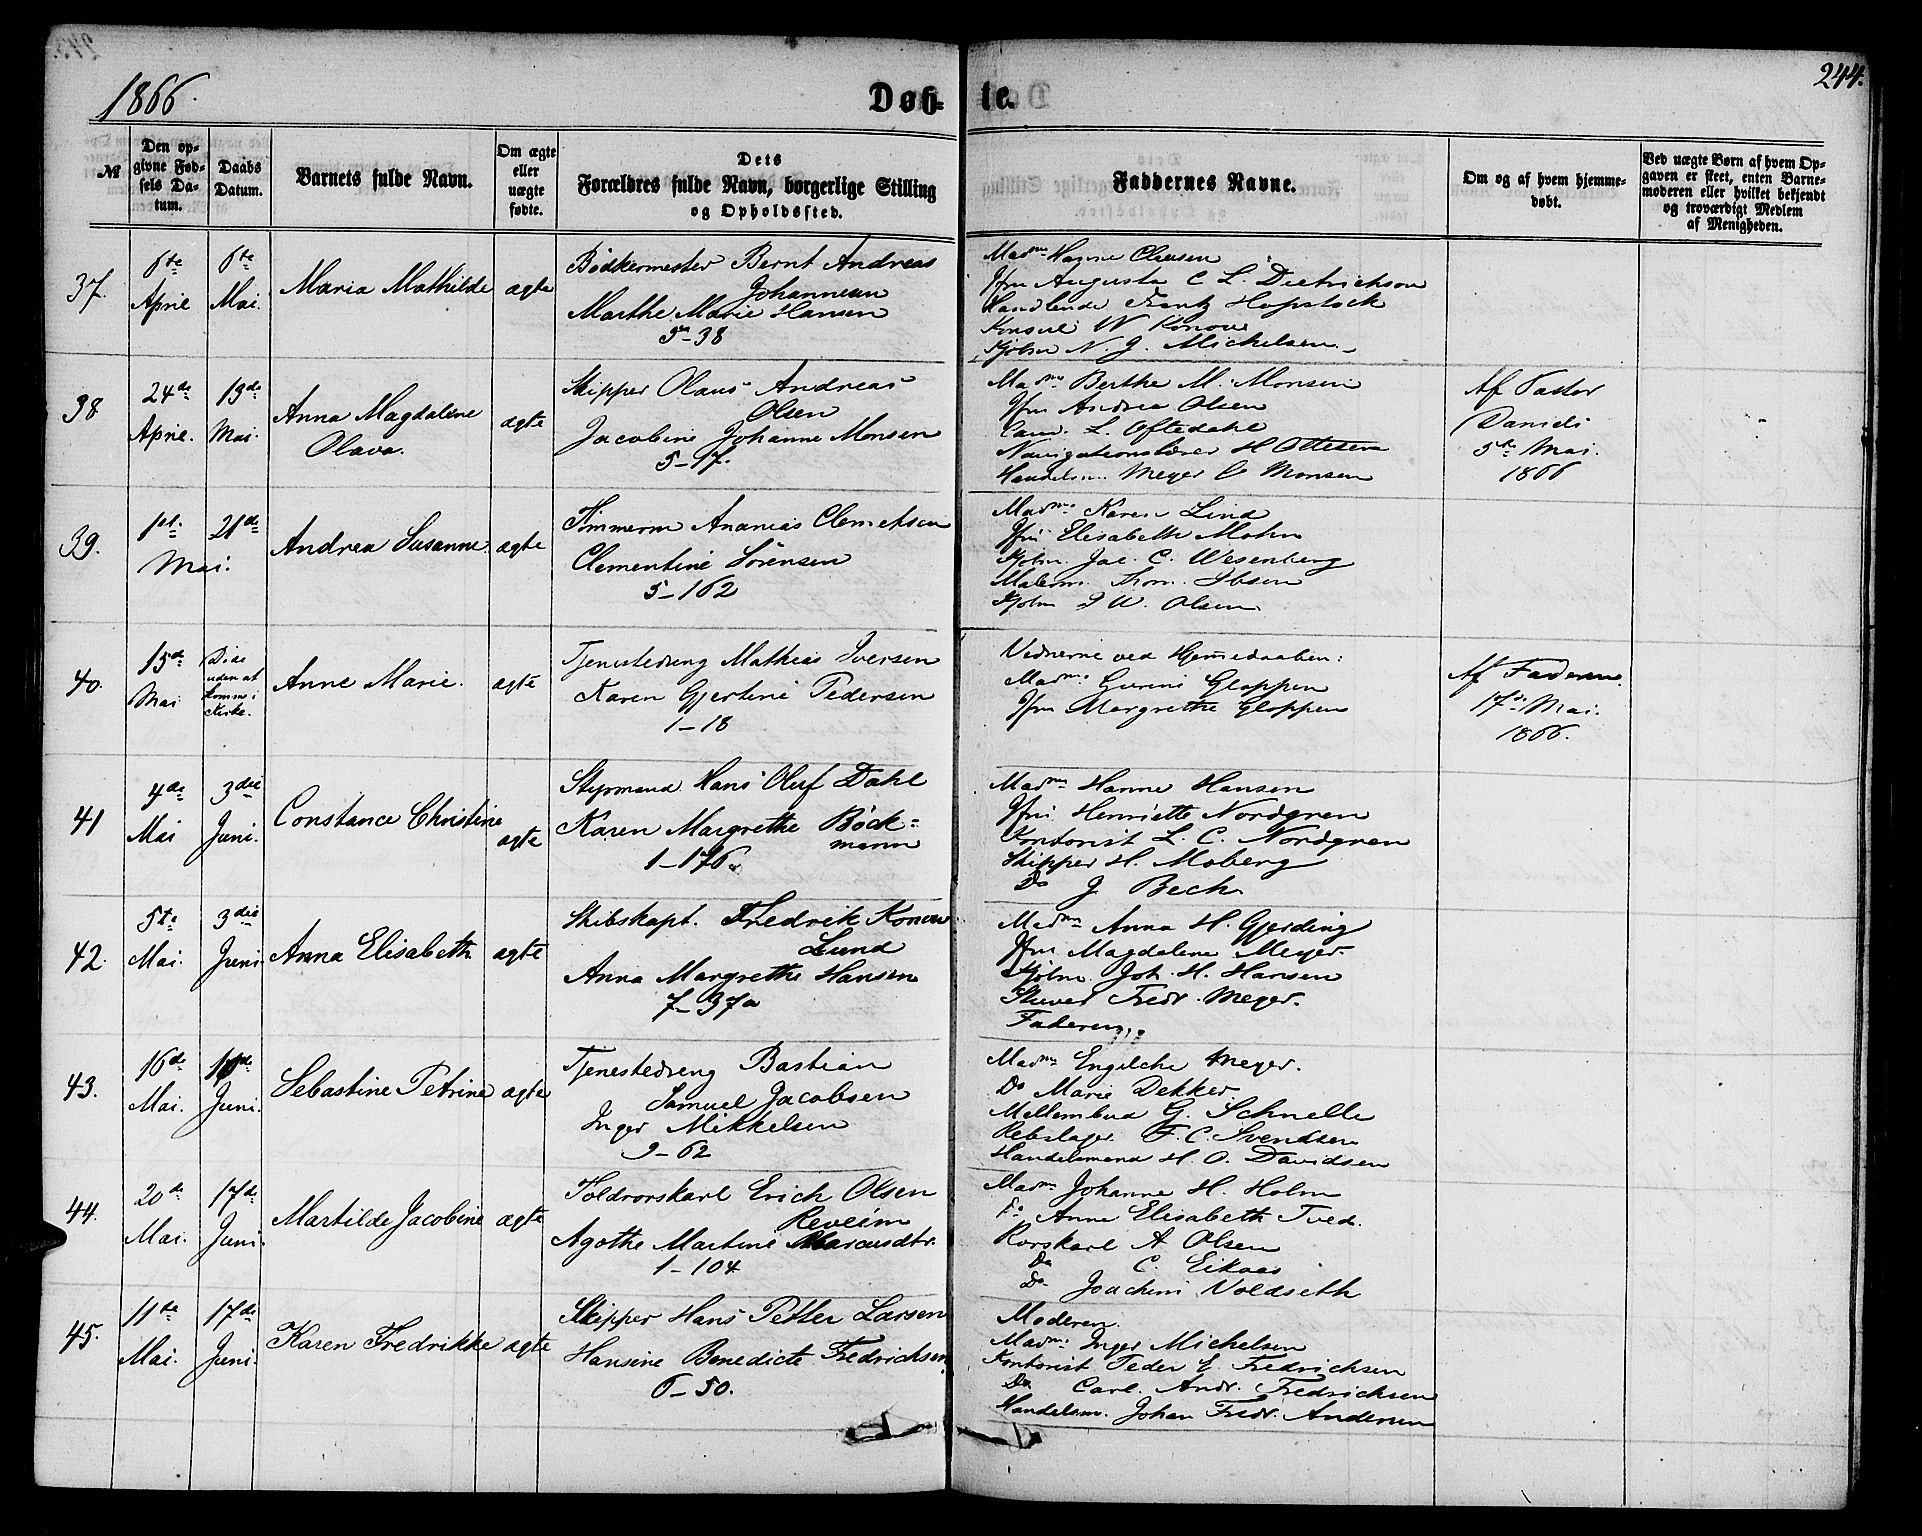 1866. Døb- te. 244.
№ Den opgivne Fødsels Datum. Daabs Datum. Barnets fulde Navn. Om ægte eller uægte fødte. Dets Forældres fulde Navn, borgerlige Stilling og Opholdssted. Faddernes Navne. Om og af hvem hjemmedøbt. Ved uægte Børn af hvem Opgaven er skeet, enten Barnemoderen eller hvilket bekjendt og troværdigt Medlem af Menigheden.
37. 6te April 6te Mai. Maria Mathilde ægte
Bødkermester Bernt Andreas
Johannesen
Marthe Marie Hansen
5-38
Madme Hagine Clausen
Jfru Augusta C L. Dietrichson
Handlende Frantz Hopstock
Konsul W Konow
Kjøbm N. J. Michelsen
38 24de April. 13de Mai. Anna Magdalene
Olava. ægte
Skipper Olaus Andreas
Olsen
Jacobine Johanne Monsen
5-17.
Madme Berthe M. Monsen
Jfru Andrea Olsen
Cand. L. Oftedahl
Navigationslærer H Ottesen
Handelsm. Meyer C Monsen
Af Pastor
Daniels
5te Mai.
1866
39. 1st. 21de Mai. Andrea Susanne ægte
Tømmerm Ananias Clemetsen
Clementine Sørensen
5-162
Madme Karen Lind
Jfru Elisabeth Mohn
Kjøbm Jac. C. Wesenberg
Malerm. Thom. Ibsen
Kjøbm P W. Olsen
40. 15de Mai Død
uden at
komme i
Kirke. Anne Marie. ægte
Tjenestedreng Mathias Iversen
Karen Gjertine Pedersen
1-18
Vidnerne ved Hjemmedaaben:
Madme Gurine Gloppen
Jfru Margrethe Gloppen
Af Faderen.
17de Mai.
1866.
41 4de Mai 3die Juni. Constance Christine ægte
Styrmand Hans Oluf Dahl
Karen Margrethe Böck=
mann
1-176.
Madme Hanne Hansen
Jfru Henriette Nordgren
Kontorist L. C. Nordgren
Skipper H. Moberg
Do J Bech
42. 5te Mai. 3die Juni. Anna Elisabeth ægte
Skibskapt. Fredrik Konow
Lund
Anna Margrethe Hansen
7-37a
Madme Anna H. Gjerding
Jfru Magdalena Meyer.
Kjøbm Joh. H. Hansen
Stuver Fredr. Meyer.
Faderen
43. 16de Mai. Juni. Sebastine Petrine ægte
Tjenestedreng Bastian
Samuel Jacobsen
Inger Mikkelsen
9-62
Madme Engelche Meyer.
Do Marie Dekker
Mellembud G. Schnelle
Rebslager F. C. Svendsen
Handelsmand H. O. Davidsen
44. 20de Mai. 17de Juni. Martilde Jacobine ægte
Toldrorskarl Erich Olsen
Reveim
Agothe Martine Marcusdtr.
1-104
Madme Johanne H. Holm
Do Anne Elisabeth Tved.
Rorskarl A Olsen
Do C. Eikaas
Do Joachim Voldseth
45. 11te Mai. 17de Juni. Karen Fredrikke ægte
Skipper Hans Petter Larsen
Hansine Benedicte Fredrichsen
6-50.
Moderen.
Madme Inger Michelsen
Kontorist Peder E. Fredrichsen
Do Carl. Andr. Fredrichsen
Handelsm. Johan Fredr. Andersen